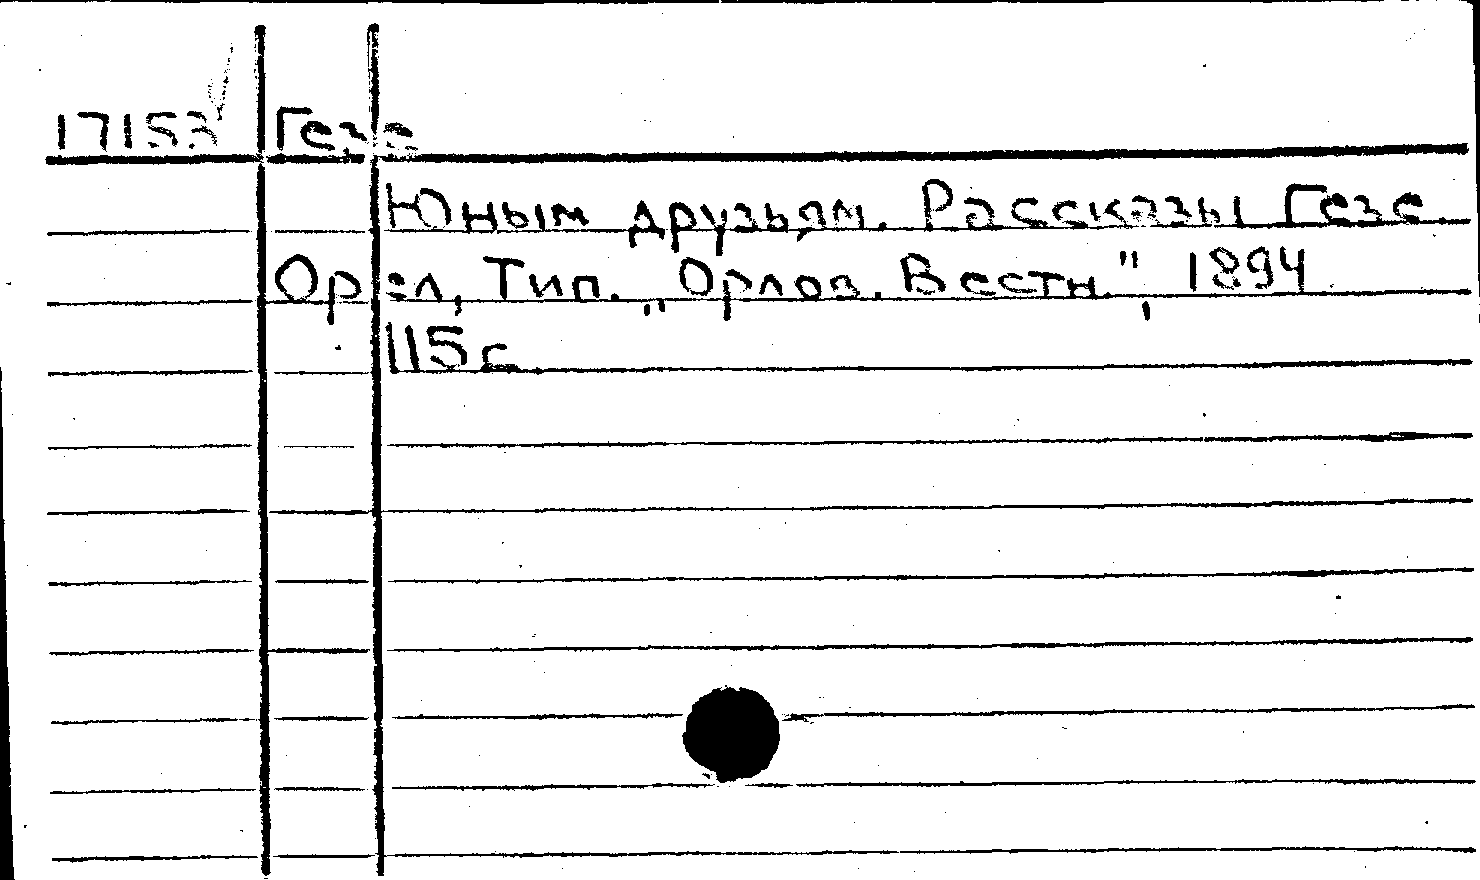 17153 Гезе
Юным друзьям. Рассказы Гезе.
Орел, Тип. „Орлов. Вестн.", 1894
115 с.